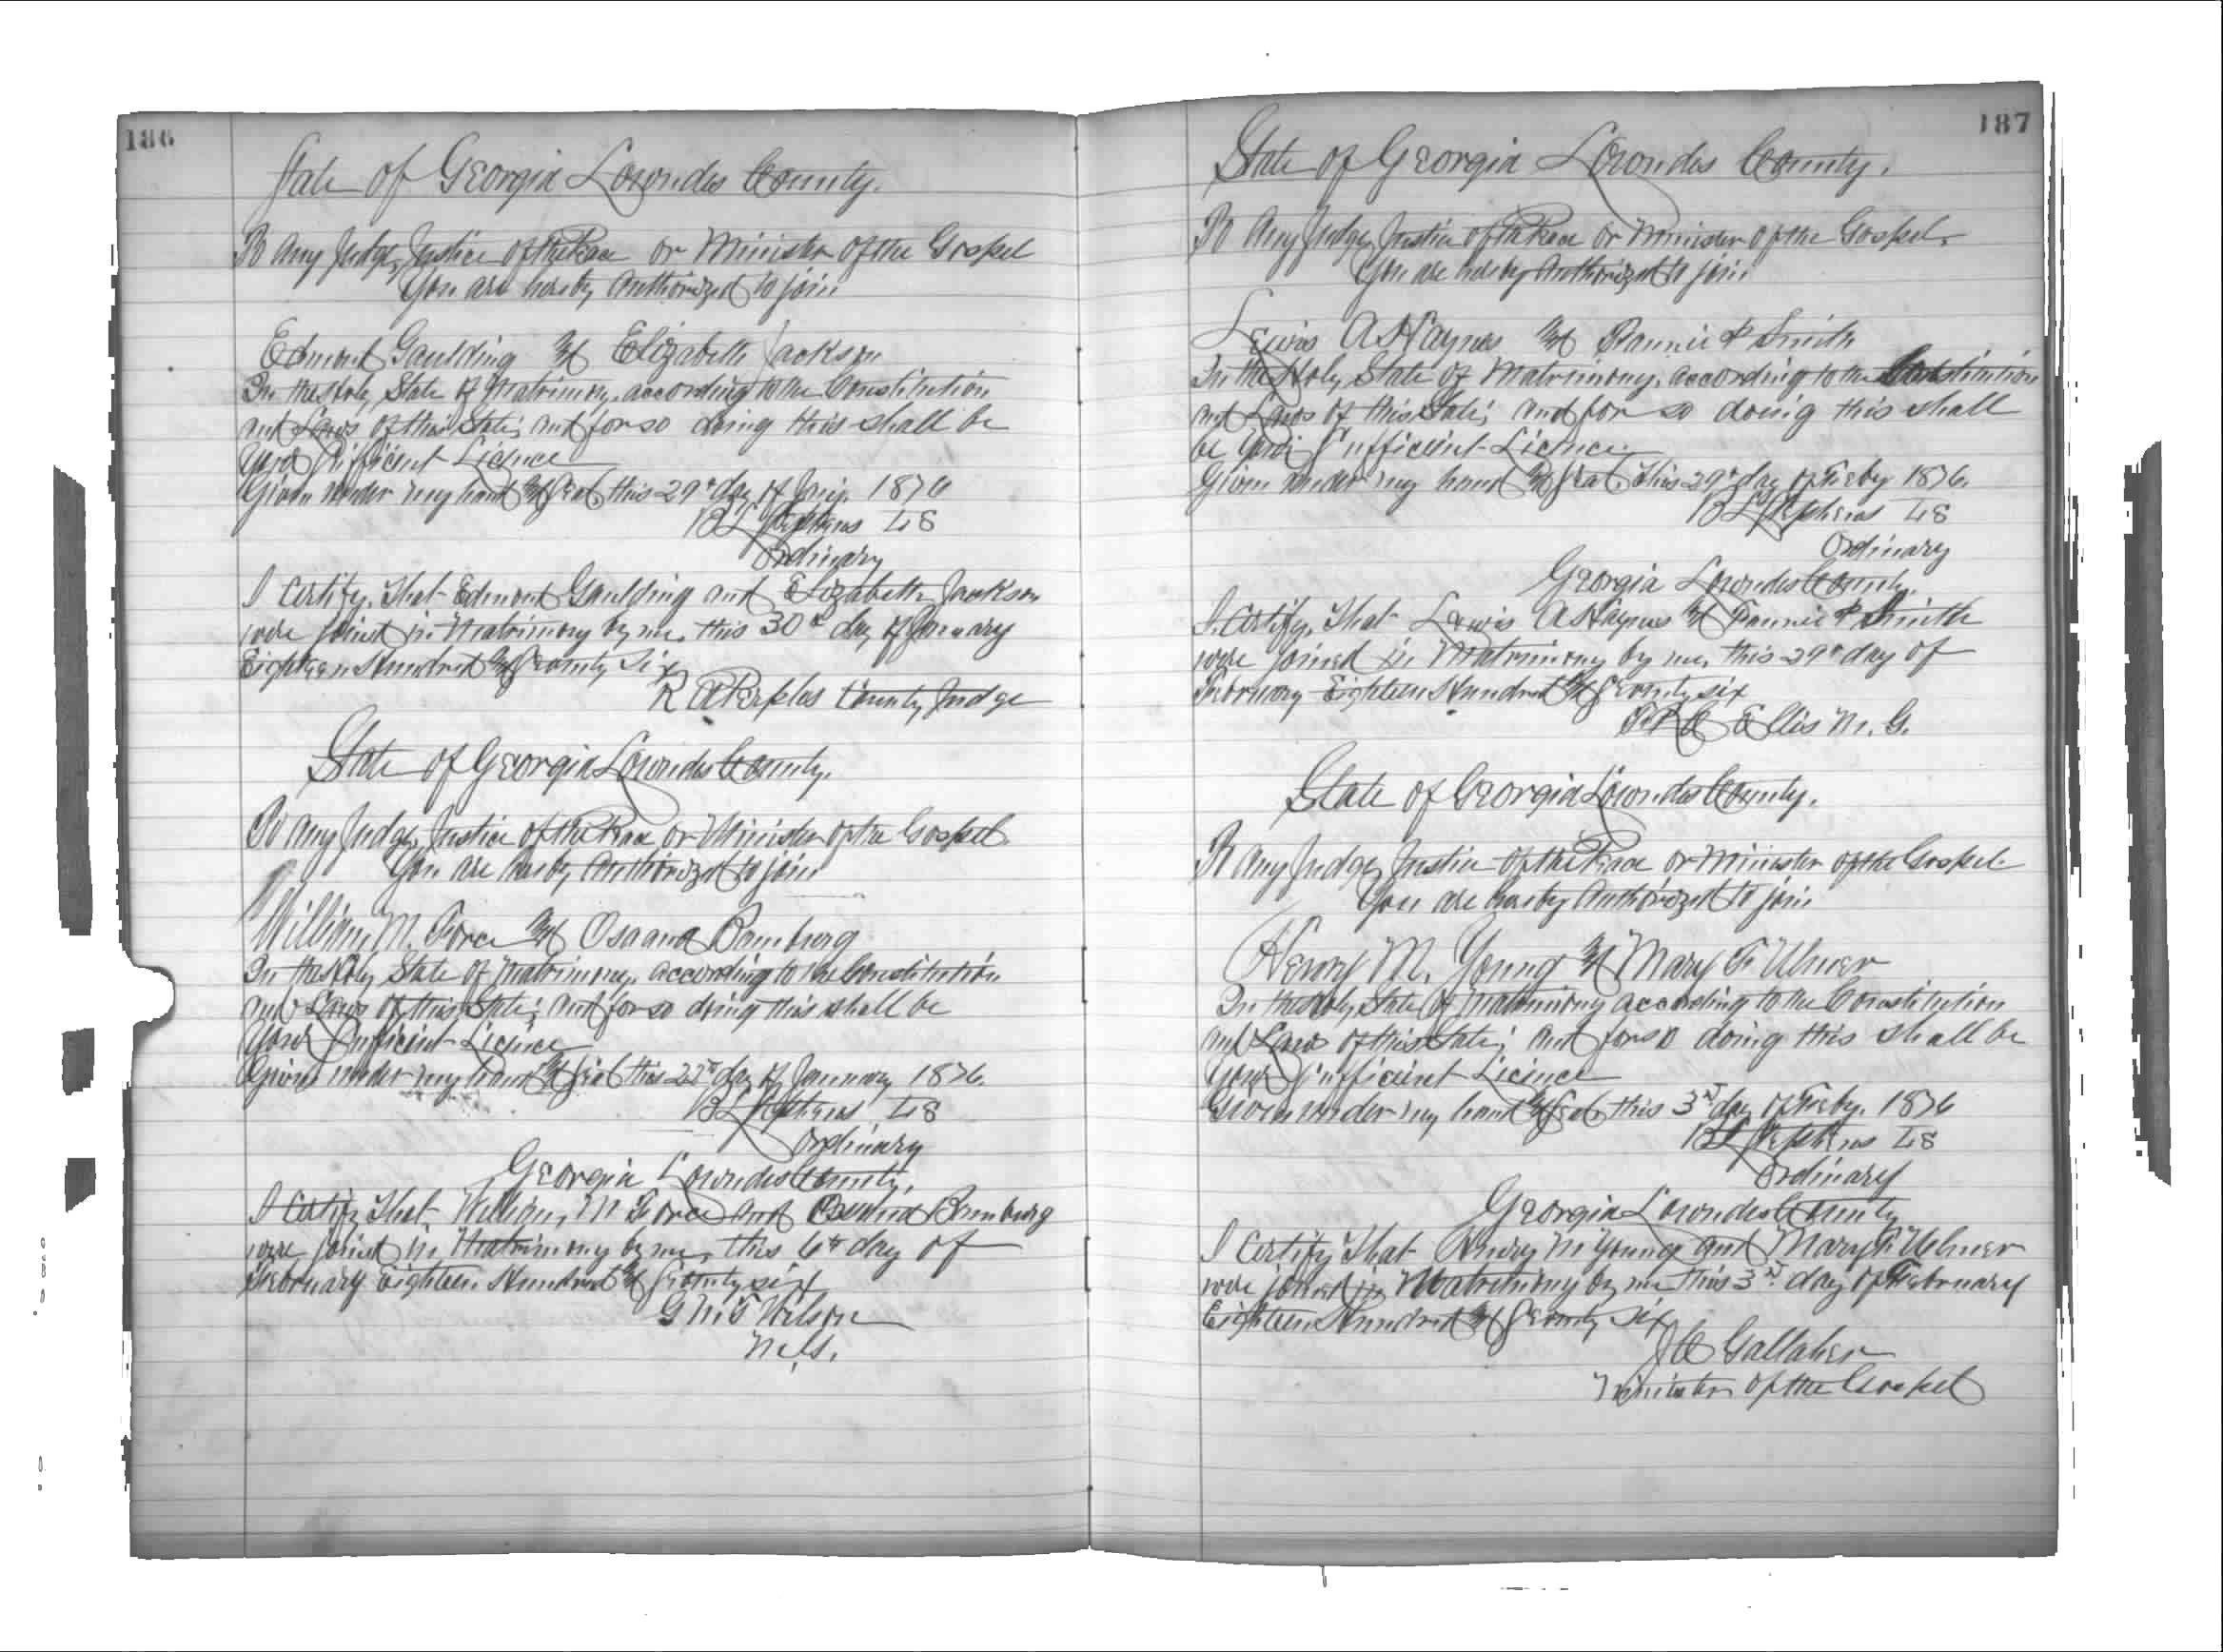 186
State of Georgia Lowndes County.
To Any Judge, Justice of the Peace or Minister of the Gospel
You are hereby Authorized to join
Edmond Gaulding & Elizabeth Jackson
In the Holy State of Matrimony, according to the Constitution
and Laws of this State; and for so doing this shall be
Your Sufficient Licence
Given under my hand & Seal this 29th day of 1876
B L Stephens LS
Ordinary
I Certify, That Edmond Gaulding and Elizabeth Jackson
were joined in Matrimony by me, this 30th day of January
Eighteen Hundred & Seventy Six
R A Peeples County Judge
State of Georgia Lowndes County.
To Any Judge, Justice of the Peace or Minister of the Gospel
You are hereby Authorized to join
William M. Force & Bamburg
In the Holy State of Matrimony, according to the Constitution
and Laws of this State; and for so doing this shall be
Your Sufficient Licence
Given under my hand & Seal this day of January 1876.
B L Stephens LS
Ordinary
Georgia Lowndes County,
I Certify That William M Force and Bamburg
were joined in Matrimony by me, this 6th day of
February Eighteen Hundred & Seventy six
G M T Wilson
M.G.
187
State of Georgia Lowndes County.
To Any Judge, Justice of the Peace or Minister of the Gospel,
You are hereby Authorized to join
Lewis A Haynes & Fannie P Smith
In the Holy State of Matrimony, according to the Constitution
and Laws of this State; and for so doing this shall
be Your Sufficient Licence
Given under my hand & Seal this 29th day of Feby 1876.
B L Stephens LS
Ordinary
Georgia Lowndes County,
I Certify, That Lewis A Haynes & Fannie P Smith
were joined in Matrimony by me, this 29th day of
February Eighteen Hundred & Seventy six
Ellis M. G.
State of Georgia Lowndes County.
To Any Judge, Justice of the Peace or Minister of the Gospel
You are hereby Authorized to join
Henry M. Young & Mary F Ulmer
In the Holy State of Matrimony according to the Constitution
and Laws of this State; and for so doing this shall be
Your Sufficient Licence
Given under my hand & Seal this 3rd day of Feby. 1876
B L Stephens LS
Ordinary
Georgia Lowndes County
I Certify That Henry M Young and Mary F. Ulmer
were joined in Matrimony by me this 3rd day of February
Eighteen Hundred & Seventy Six
J C Gallaher
Minister of the Gospel